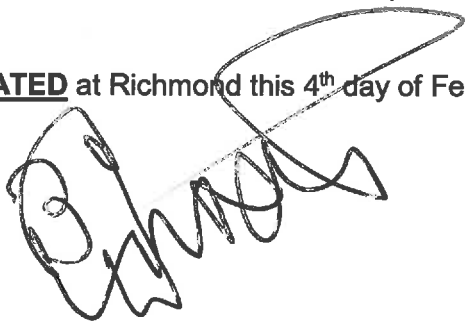 ATED at Richmond this 4th day of Fe